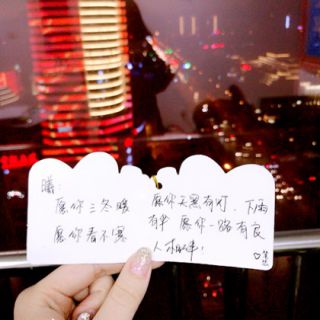 曦:
愿你三冬暖
愿你春不寒
愿你天黑有灯、下雨
有伞 愿你一路有良
人相伴!